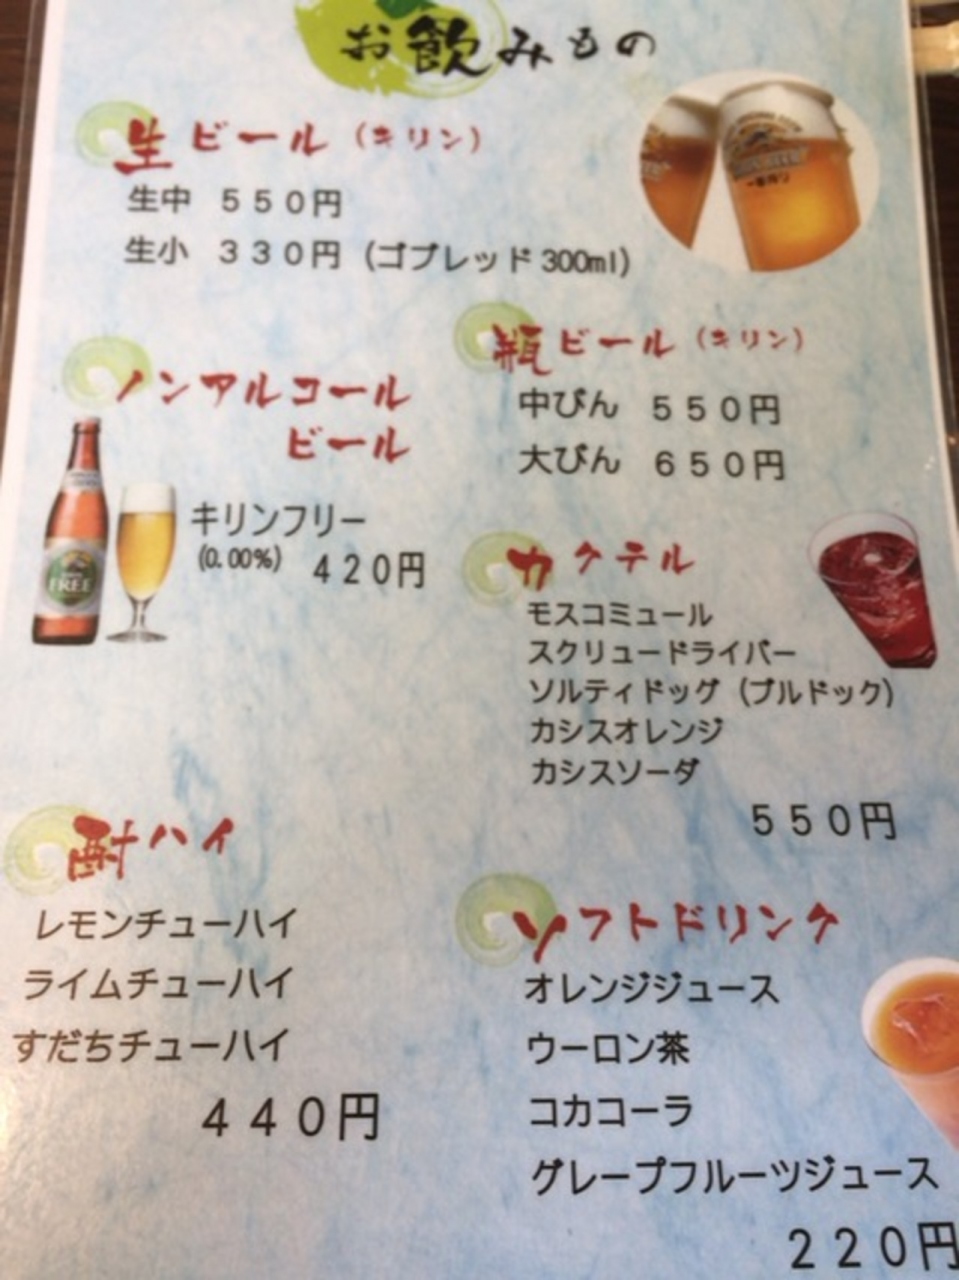 お飲みもの
生ビール（キリン）
生中 ５５０円
生小 ３３０円（ゴブレッド300ml）
瓶ビール（キリン）
中びん ５５０円
大びん ６５０円
ノンアルコール
ビール
キリンフリー
(0.00%) ４２０円
FREE
カクテル
モスコミュール
スクリュードライバー
ソルティドッグ（ブルドック）
カシスオレンジ
カシスソーダ
５５０円
酎ハイ
レモンチューハイ
ライムチューハイ
すだちチューハイ
４４０円
ソフトドリンク
オレンジジュース
ウーロン茶
コカコーラ
グレープフルーツジュース
２２０円